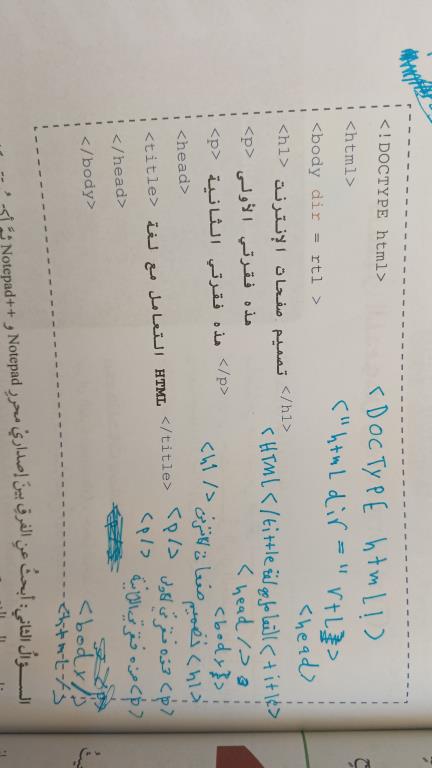 <!DOCTYPE html>
<html>
<body dir = rtl >
<h1> تصميم صفحات الإنترنت </h1>
<p> هذه فقرتي الأولى
<p> هذه فقرتي الثانية </p>
<head>
<title> التعامل مع لغة HTML </title>
</head>
</body>
<DOCTYPE html!>
<"html dir =" rtl
<head>
<title> التعامل مع لغة HTML </tittle>
<head/>
<body>
<h1> تصميم صفحات <h1/>
<p> هذه فقرتي <p/>
<p> هذه فقرتي الثانية <p/>
<body/>
<html/>
السؤال الثاني: أبحثُ عنِ الفرقِ بينَ إصداريْ محررِ Notepad و Notepad++